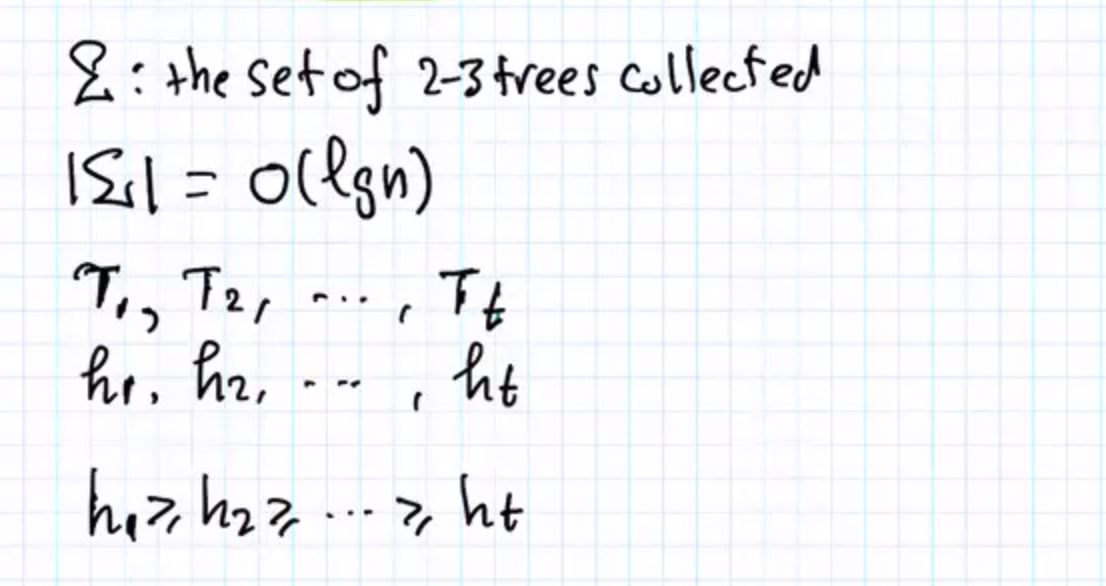 Σ : the set of 2-3 trees collected
|Σ| = O(lgn)
T₁, T₂, ..., Tₜ
h₁, h₂, ..., hₜ
h₁ ≥ h₂ ≥ ... ≥ hₜ